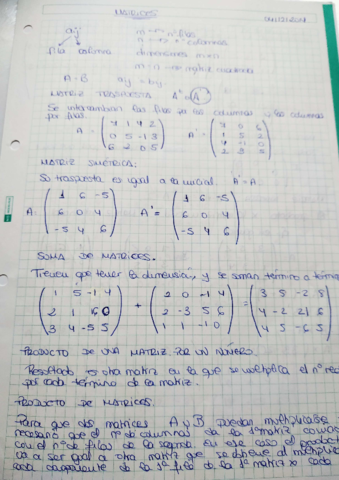 MATRICES
aij
m = nº filas
n = nº columnas
fila columna
dimensiones m×n
m = n → matriz cuadrada
A = B aij = bij
MATRIZ TRASPUESTA Aᵗ
Se intercambian las filas por las columnas y las columnas
por filas
A = Aᵗ =
0 5 -1 3
6 2 0 5
MATRIZ SIMÉTRICA:
Su traspuesta es igual a la inicial. Aᵗ = A
A = (1 6 -5) Aᵗ = (1 6 -5)
(6 0 4) (6 0 4)
(-5 4 6) (-5 4 6)
SUMA DE MATRICES.
Tienen que tener la dimensión, y se suman término a término
(1 5 -1 4) + (2 0 -1 4) = (3 5 -2 8)
(2 1 16 0) (2 -3 5 6) (4 -2 21 6)
(3 4 -5 5) (1 1 -1 0) (4 5 -6 5)
PRODUCTO DE UNA MATRIZ POR UN NÚMERO.
Resultado es otra matriz en la que se multiplica el nº real
por cada término de la matriz.
PRODUCTO DE MATRICES.
Para que dos matrices A y B puedan multiplicarse
necesario que el nº de columnas de la 1ª matriz coincida
con el nº de filas de la segunda. En ese caso el producto
va a ser igual a otra matriz que se obtiene al multiplicar
cada componente de la 1ª fila de la 1ª matriz × cada